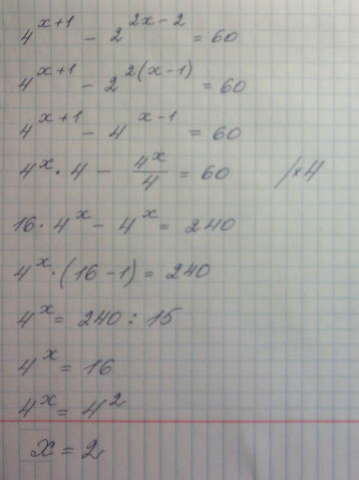 4^{x+1} - 2^{2x-2} = 60
4^{x+1} - 2^{2(x-1)} = 60
4^{x+1} - 4^{x-1} = 60
4^x · 4 - 4^x/4 = 60 /×4
16 · 4^x - 4^x = 240
4^x · (16 - 1) = 240
4^x = 240 : 15
4^x = 16
4^x = 4^2
x = 2